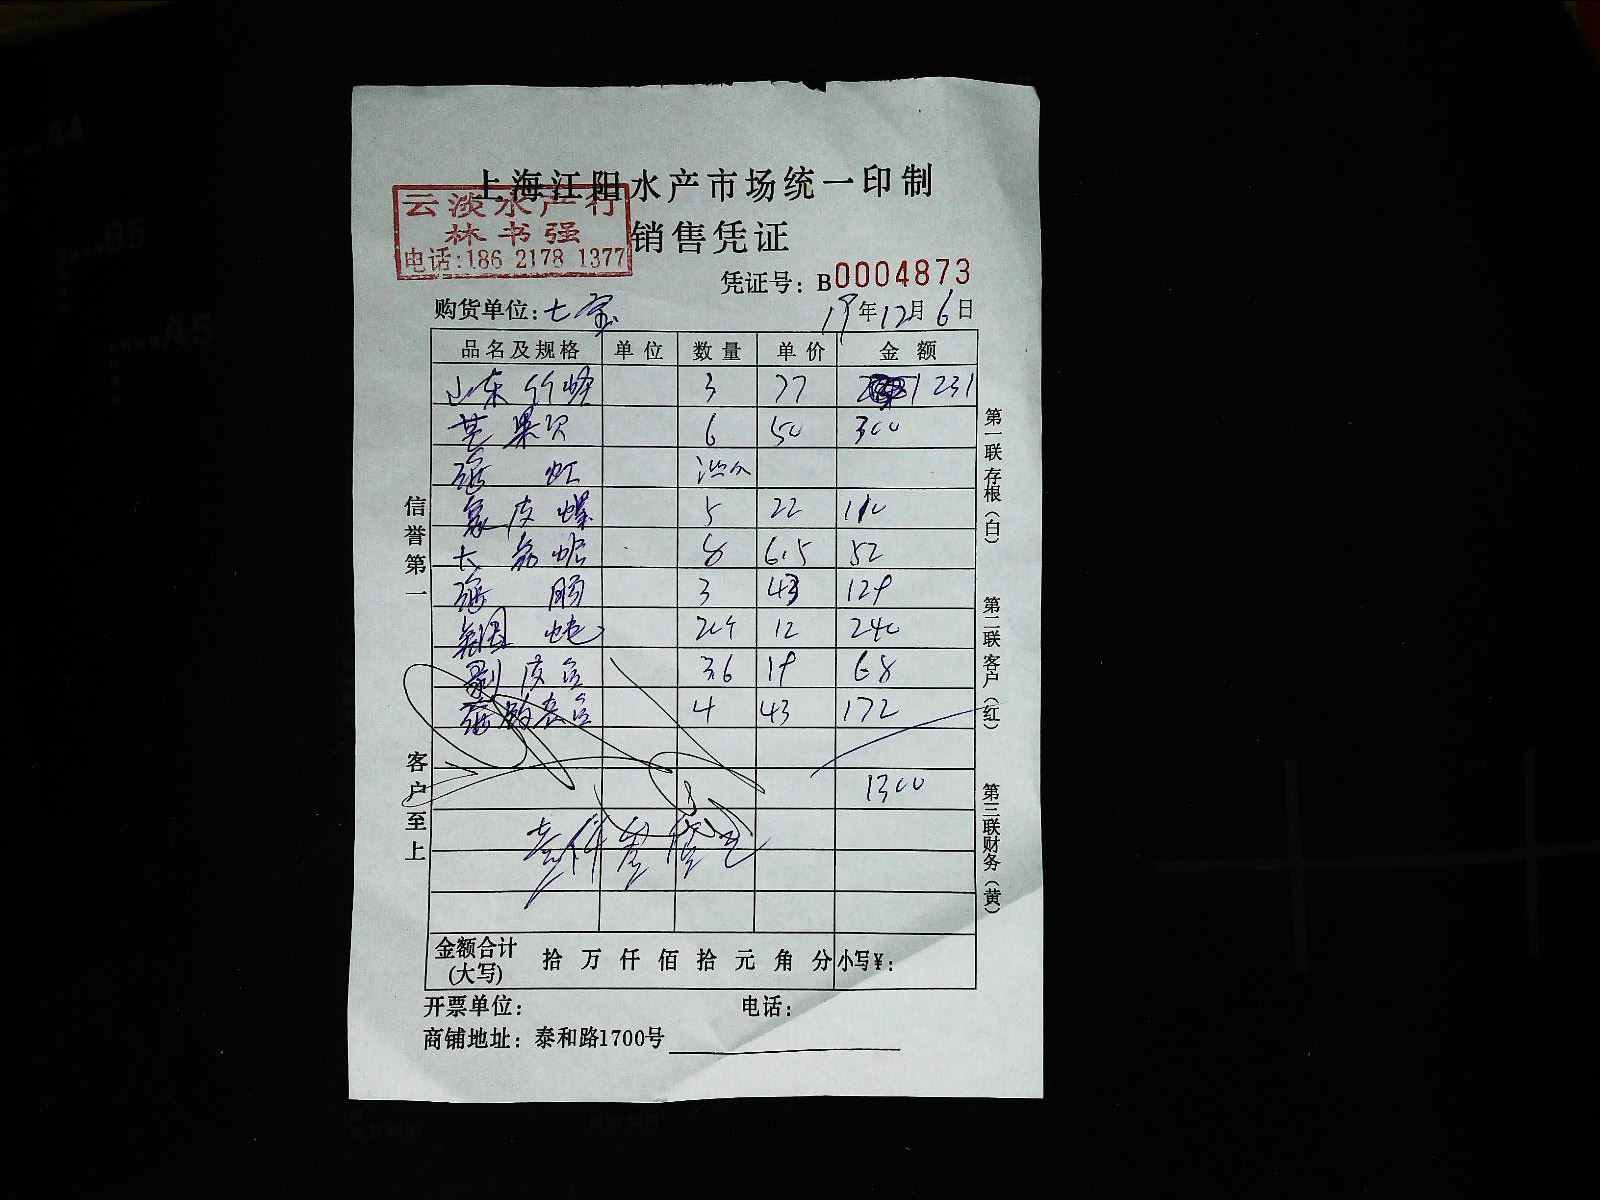 上海江阳水产市场统一印制
云淡水产行
林书强
电话:186 2178 1377
销售凭证
凭证号: B0004873
购货单位: 七宝 19年12月6日
品名及规格 单位 数量 单价 金额
山东竹蛏 3 77 231
芒果贝 6 50 300
虹
象皮螺 5 22 110
大 6.5 52
3 43 129
12 240
剥皮鱼 3.6 19 68
4 43 172
1300
金额合计(大写) 拾 万 仟 佰 拾 元 角 分 小写¥:
开票单位: 电话:
商铺地址: 泰和路1700号
信誉第一 客户至上
第一联存根(白) 第二联客户(红) 第三联财务(黄)